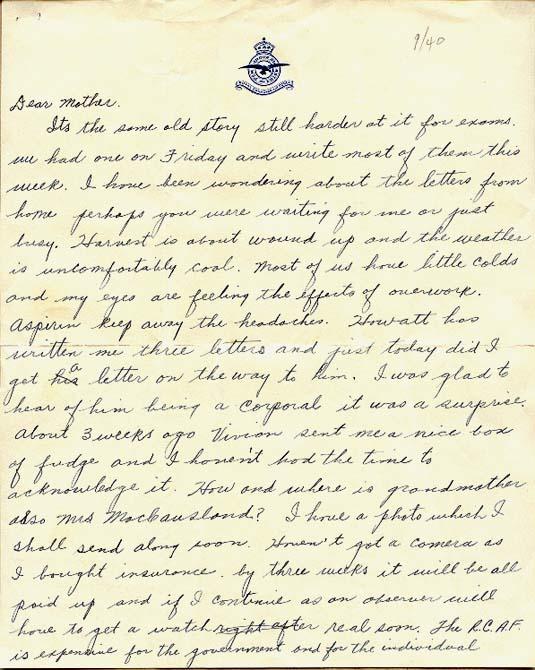 9/40
Dear Mother.
Its the same old story still harder at it for exams.
we had one on Friday and write most of them this
week. I have been wondering about the letters from
home perhaps you were waiting for me or just
busy. Harvest is about wound up and the weather
is uncomfortably cool. Most of us have little colds
and my eyes are feeling the effects of overwork.
Aspirin keep away the headaches. Howatt has
written me three letters and just today did I
get his a letter on the way to him. I was glad to
hear of him being a Corporal it was a surprise.
About 3 weeks ago Vivian sent me a nice box
of fudge and I haven't had the time to
acknowledge it. How and where is grandmother
also Mrs MacCausland? I have a photo which I
shall send along soon. Haven't got a camera as
I bought insurance. by three weeks it will be all
paid up and if I continue as an observer will
have to get a watch right after real soon. The R.C.A.F.
is expensive for the government and for the individual